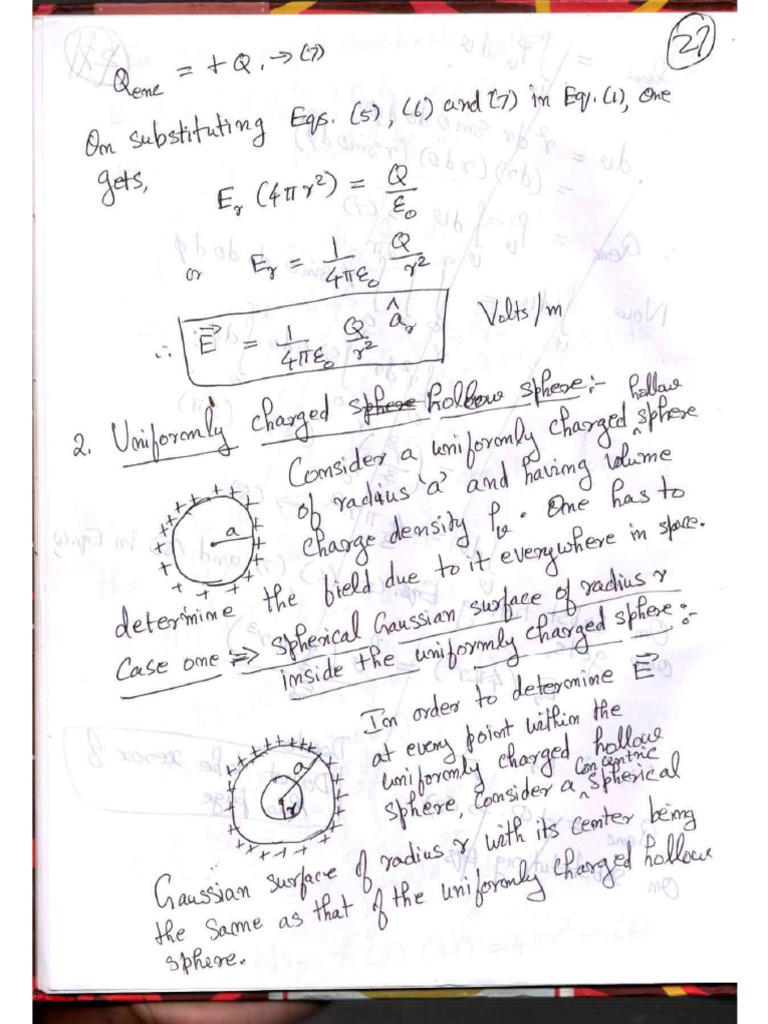 27
Qenc = + Q. → (7)
On substituting Eqs. (5), (6) and (7) in Eq. (1), one
gets,
Er (4πr²) = Q/ε₀
or Er = 1/4πε₀ Q/r²
∴ E⃗ = 1/4πε₀ Q/r² âr Volts/m
2. Uniformly charged sphere hollow sphere:-
Consider a uniformly charged hollow sphere
of radius 'a' and having volume
charge density ρv. One has to
determine the field due to it everywhere in space.
Case one ⇒ spherical Gaussian surface of radius r
inside the uniformly charged sphere:-
In order to determine E⃗
at every point within the
uniformly charged hollow
sphere, consider a concentric spherical
Gaussian surface of radius r with its center being
the same as that of the uniformly charged hollow
sphere.
a
a
r